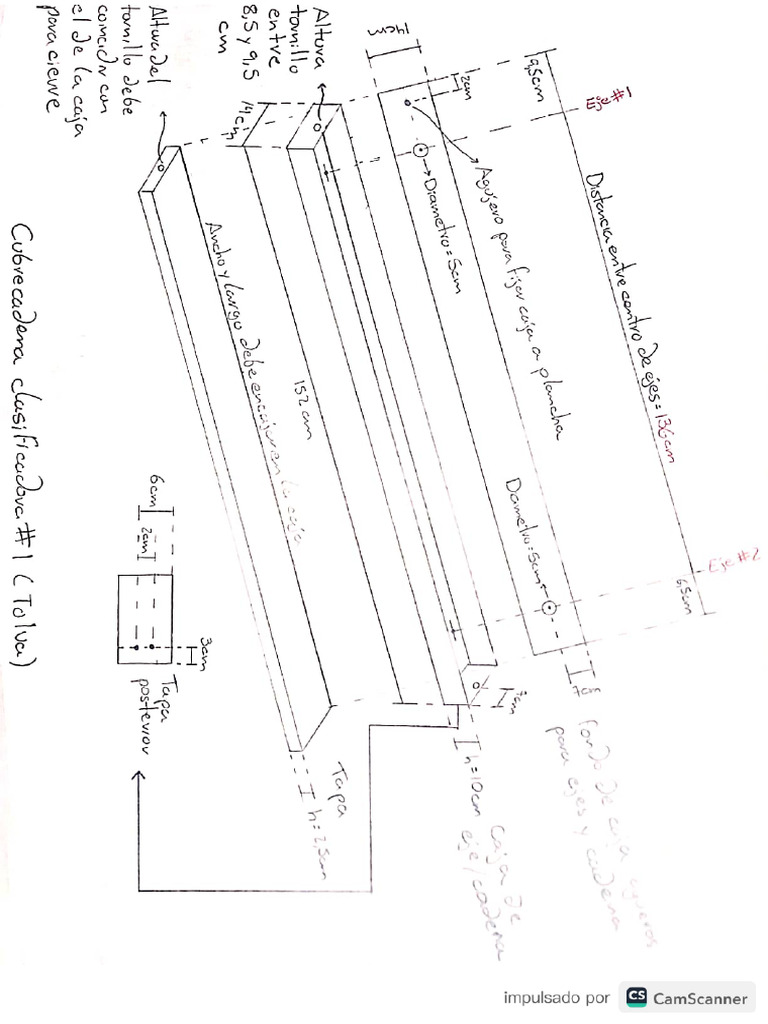 Cubrecadena clasificadora #1 (Tolva)
Altura del
tornillo debe
coincidir con
el de la caja
para cierre
Altura
tornillo
entre
8,5 y 9,5
cm
14cm
14cm
2cm
9,5cm
Eje #1
Distancia entre centro de ejes=136cm
Eje #2
6,5cm
Agujero para fijar caja a plancha
→Diametro=5cm
Diametro=5cm←
152cm
Ancho y largo debe encajar en la caja
Fondo de caja agueros
para ejes y cadena
h=10cm Caja de
eje/cadena
Tapa
h=2,5cm
6cm
2cm
3cm
Tapa
posterior
impulsado por CS CamScanner